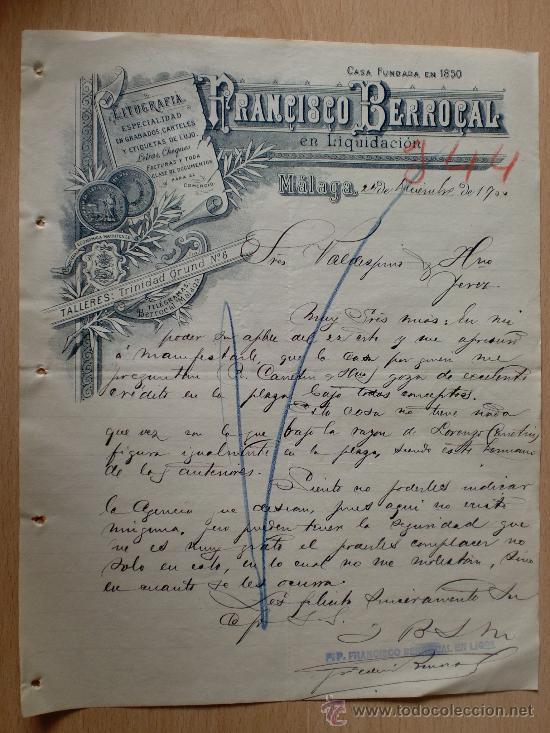 CASA FUNDADA EN 1850
FRANCISCO BERROCAL
en Liquidación
LITOGRAFIA
ESPECIALIDAD
EN GRABADOS, CARTELES
Y ETIQUETAS DE LUJO.
Letras, Cheques
FACTURAS Y TODA
CLASE DE DOCUMENTOS
PARA EL
COMERCIO
344
Málaga, de Diciembre de 19
TALLERES: Trinidad Grund Nº 6
TELEGRAMAS:
BERROCAL-MALAGA
Sres Valdespino y Hno
Jerez
Muy Sres mios: En mi
poder su aptble del 22 este y me apresuro
á manifestarle que la casa por quien me
preguntan y Hno) goza de excelente
crédito en la plaza bajo todos conceptos.
Esta casa no tiene nada
que ver con la que bajo la razon de Lorenzo
figura igualmente en la plaza, siendo este hermano
de los anteriores.
Siento no poderles indicar
la Agencia que desean, pues aqui no existe
ninguna, pero pueden tener la seguridad que
me es muy grato el poderles complacer no
solo en esto, en lo cual no me molestan, sino
en cuanto se les ocurra.
Les saluda sinceramente su
S. S.
Q B S M
P. P. FRANCISCO BERROCAL EN LIQON.
www.todocoleccion.net